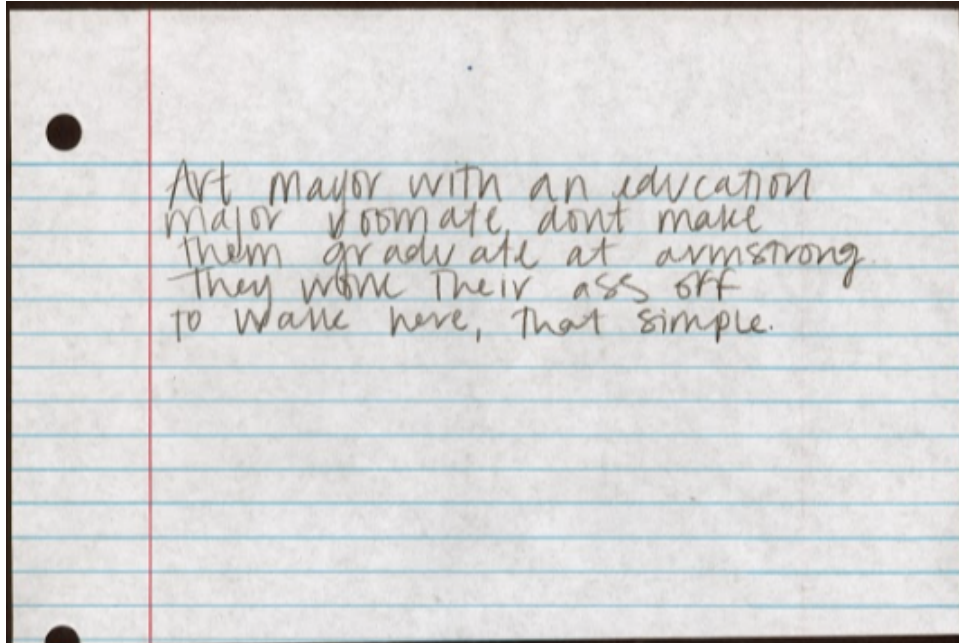 Art mayor with an education
major roomate, dont make
them graduate at armstrong.
They work their ass off
to walk here, that simple.